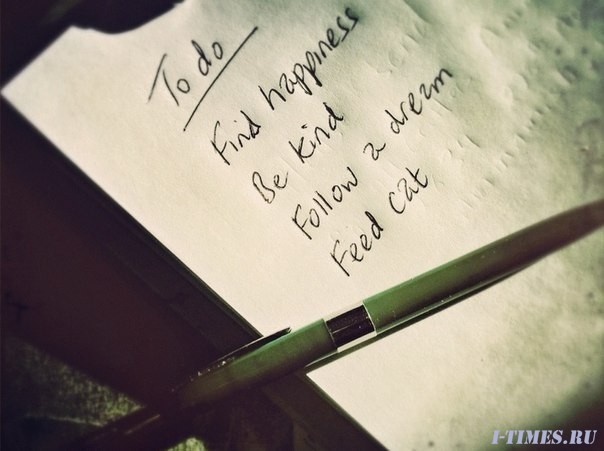 To do
Find happiness
Be kind
Follow a dream
Feed cat
I-TIMES.RU